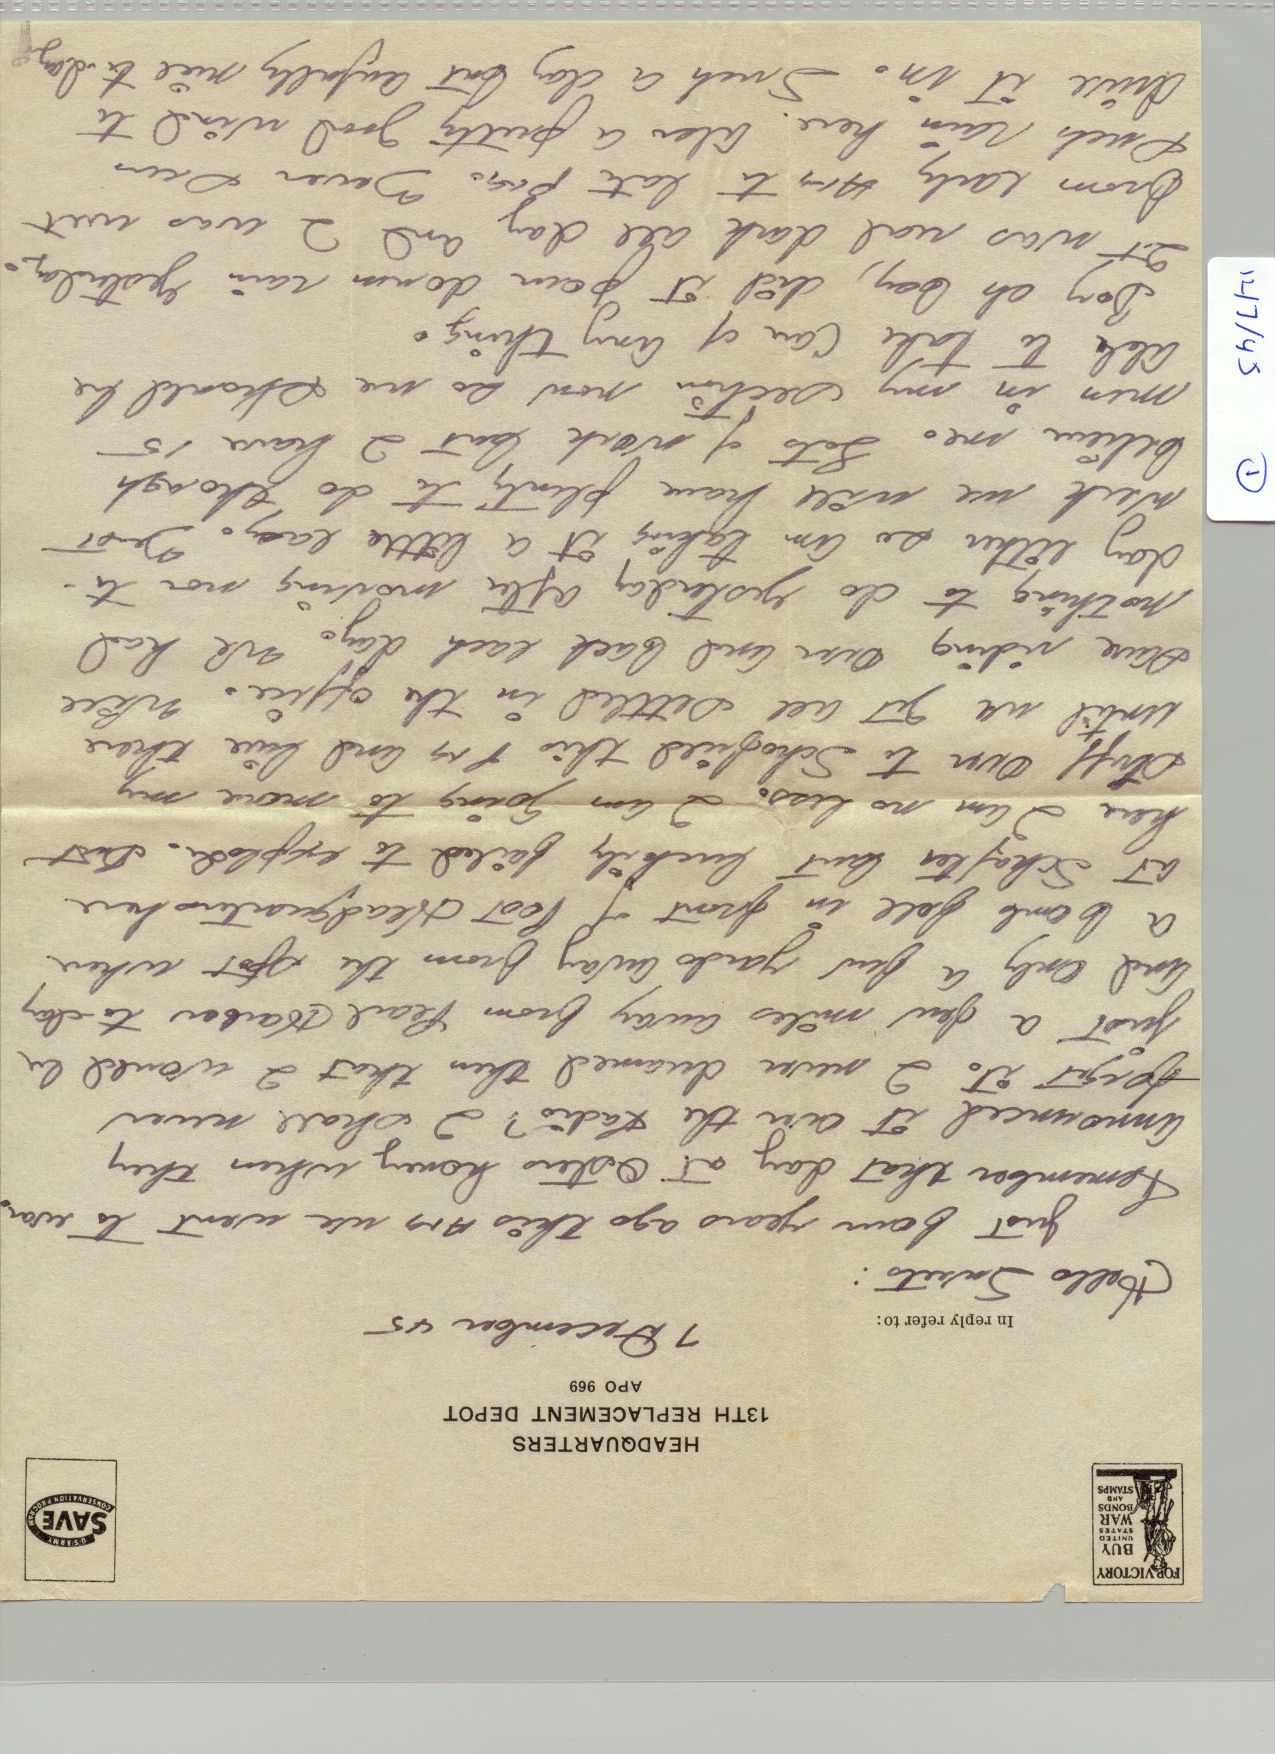 FOR VICTORY
BUY
UNITED
STATES
WAR
BONDS
AND
STAMPS
U·S·ARMY
SAVE
CONSERVATION PROGRAM
HEADQUARTERS
13TH REPLACEMENT DEPOT
APO 969
7 December 45
In reply refer to:
Hello Sweets:
Just four years ago this AM we went to war.
Remember that day at Osters honey when they
announced it over the radio? I shall never
forget it. I never dreamed then that I would be
just a few miles away from Pearl Harbor to-day
and only a few yards away from the spot where
a bomb fell in front of Post Headquarters here
at Schafter but luckily failed to explode. But
here I am no less. I am going to move my
stuff over to Schofield this PM and live there
until we get all settled in the office. Will
save riding over and back each day. We had
nothing to do yesterday after moving nor to-
day either so am taking it a little easy. Next
week we will have plenty to do though
believe me. Lots of work but I have 15
men in my section now so we should be
able to take care of any thing.
Boy oh boy, did it pour down rain yesterday.
It was real dark all day and I was wet
from early AM to late PM. Never seen
such rain here. Also a pretty good wind to
drive it in. Such a day but awfully nice to-day
12/7/45
1